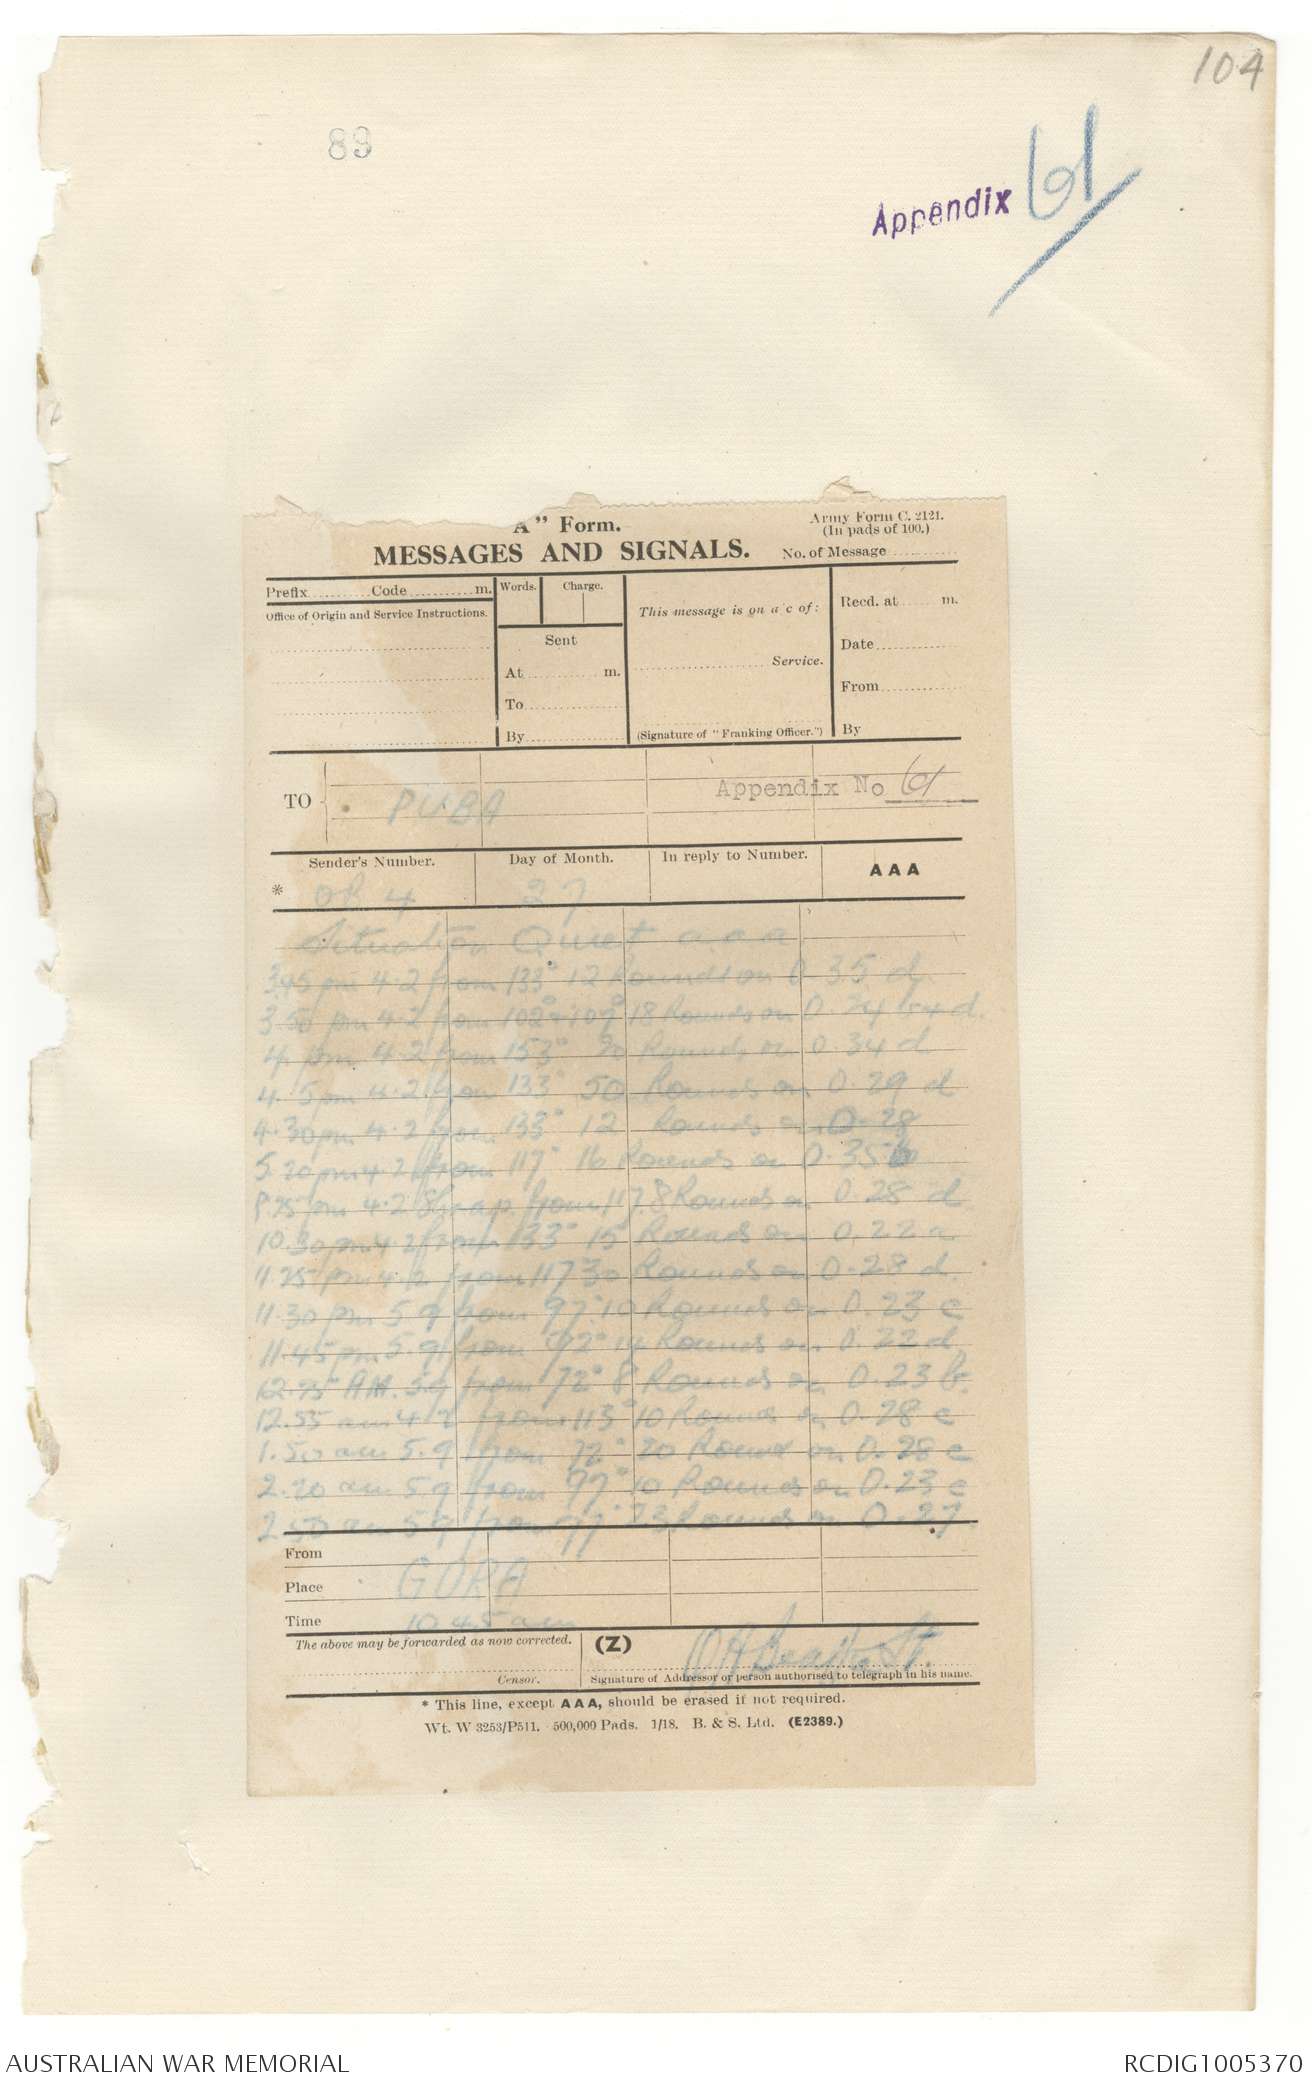 104
89
Appendix 61
"A" Form.
Army Form C. 2121.
(In pads of 100.)
MESSAGES AND SIGNALS.
No. of Message
Prefix Code m.
Words. Charge.
This message is on a/c of:
Recd. at m.
Office of Origin and Service Instructions.
Sent
Date
At m.
Service.
From
To
By
(Signature of "Franking Officer.")
By
TO PUBA
Appendix No 61
Sender's Number. Day of Month. In reply to Number. AAA
* OR 4 27
Situation Quiet aaa
3.45 pm 4.2 from 133° 12 Rounds on O.35 d
3.50 pm 4.2 from 102° 109° 18 Rounds on O.34 d.
4. pm 4.2 from 153° Rounds on O.34 d
4. 5pm 4.2 from 133° 50 Rounds on O.29 d
4.30pm 4.2 from 133° 12 Rounds on O.28
5.20pm 4.2 from 117° 16 Rounds on O.35 b
8.25 pm 4.2 Shrap. from 117. 8 Rounds on O.28 d
10.30pm 4.2 from 133° 15 Rounds on O.22 a
11.25 pm 4.2 from 117° 30 Rounds on O.28 d.
11.30 pm 5.9 from 97° 10 Rounds on O.23 c
11.45pm 5.9 from 14 Rounds on O.22 d
12.25 AM. 5.9 from 72° 8 Rounds on O.23 b.
12.55 am 4.2 from 113° 10 Rounds on O.28 c
1.50 am 5.9 from 72° 20 Rounds on O.28 c
2.20 am 5.9 from 97° 10 Rounds on O.23 c
2.50 am 5.9 from 23 Rounds on O.27.
From
Place GORA
Time 10.45 am
The above may be forwarded as now corrected. (Z)
Censor. Signature of Addressor or person authorised to telegraph in his name.
* This line, except AAA, should be erased if not required.
Wt. W 3253/P511. 500,000 Pads. 1/18. B. & S. Ltd. (E2389.)
AUSTRALIAN WAR MEMORIAL
RCDIG1005370